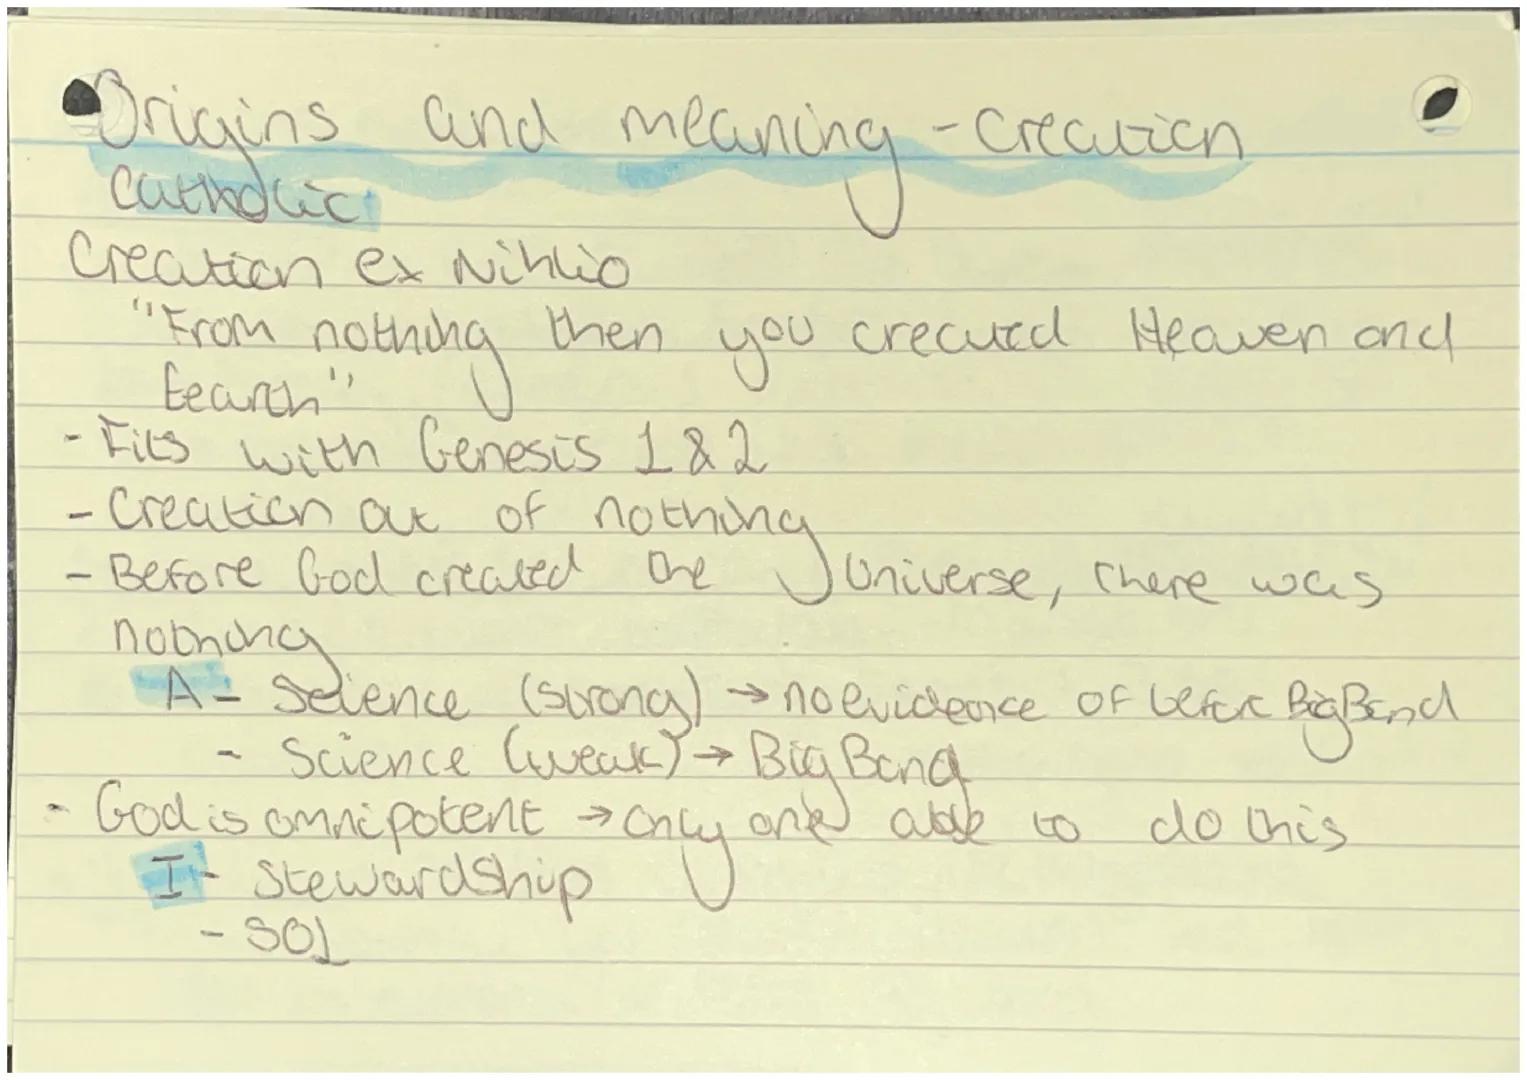 Origins and meaning - Creation
Catholic
Creation ex Nihlio
"From nothing then you created Heaven and
Eearth"
- Fits with Genesis 1 & 2
- Creation out of nothing
- Before God created the Universe, there was
nothing
A - Science (strong) → no evidence of before Big Band
- Science (weak) → Big Bang
- God is omnipotent → only one able to do this
I - Stewardship
- SOL